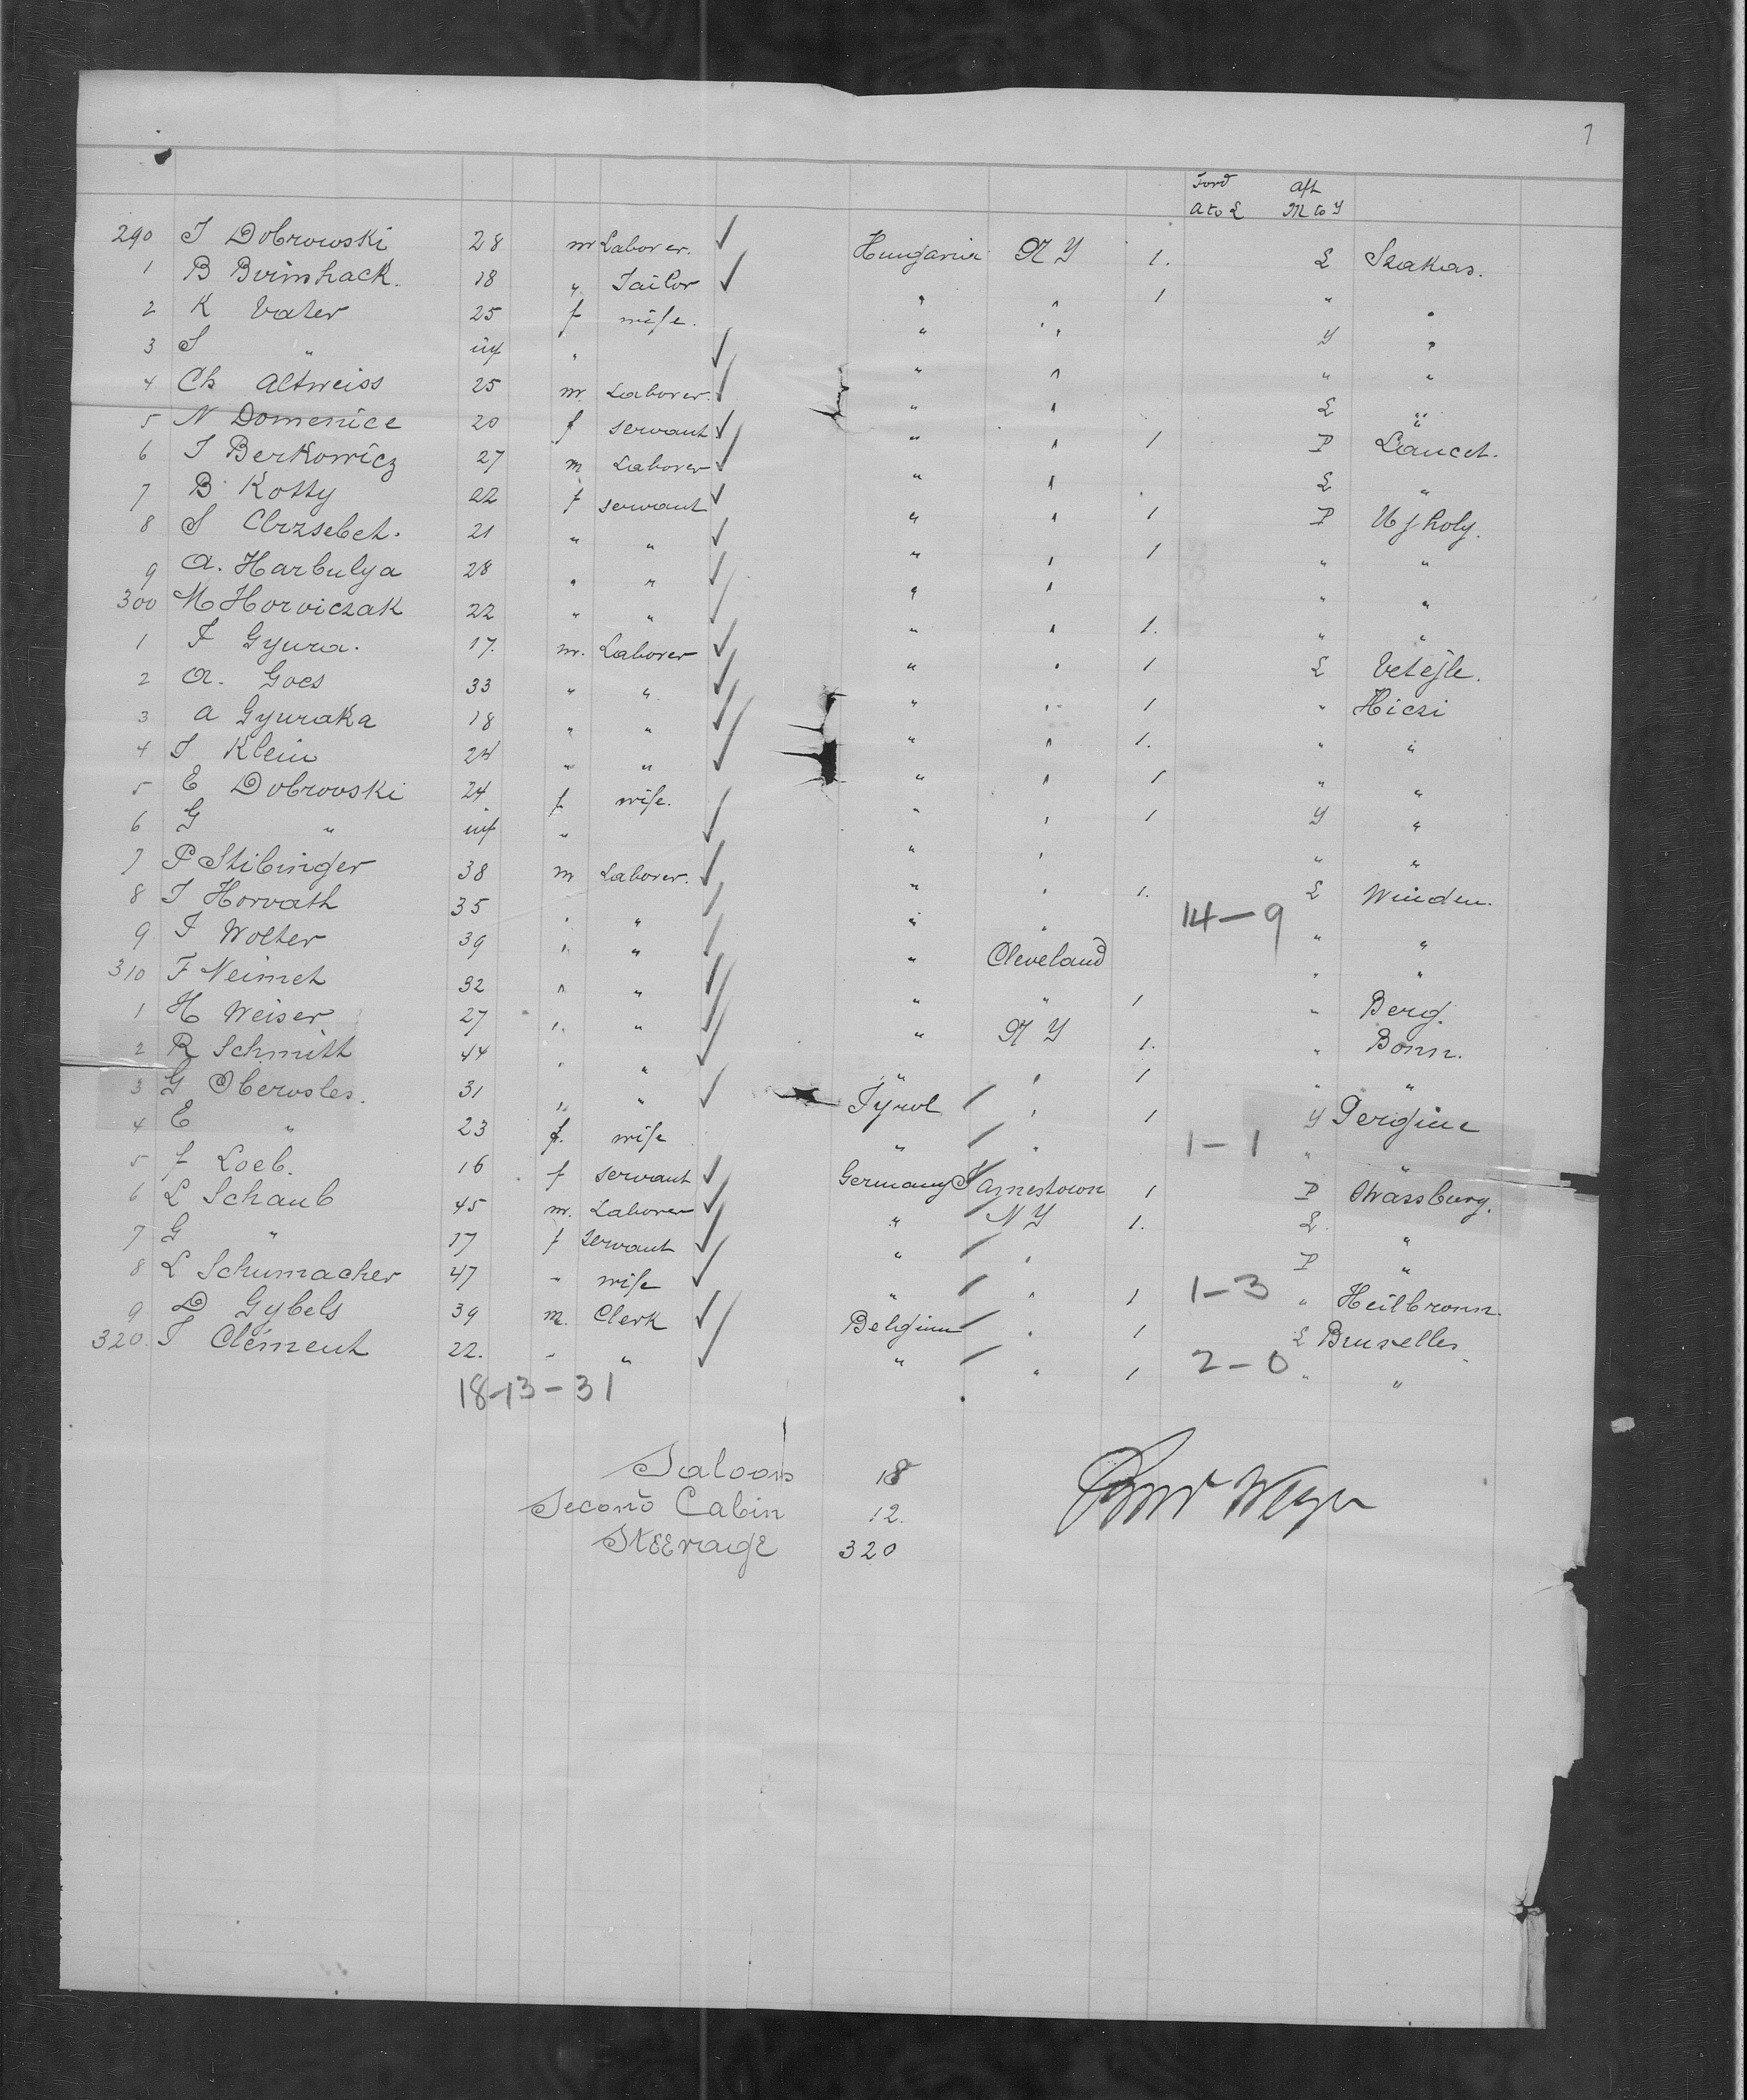 7
Forwd Aft
A to L M to Y
290 J Dobrowski 28 m Laborer. Hungaria N Y 1. L Szakas.
1 B Bernshack. 18 " Tailor " " 1 " "
2 K Vater 25 f wife. " " Y "
3 S " inf " " " " "
4 Ch Altweiss 25 m. Laborer. " " L "
5 N Domenice 20 f servant " " 1 P Lancet.
6 J Berkowicz 27 m Laborer " " L "
7 B Kotty 22 f servant " " 1 P Ujholy.
8 S Erzsebet. 21 " " " " 1 " "
9 A. Harbulya 28 " " " " " "
300 M Horviczak 22 " " " " 1. " "
1 F Gyura. 17. m. Laborer " " 1 L Vetejle.
2 A. Goes 33 " " " " 1 " Hiczi
3 A Gyuraka 18 " " " " 1. " "
4 J Klein 24 " " " " 1 " "
5 E Dobrovski 24 f wife. " " 1 Y "
6 G " inf " " " " "
7 P Stibinger 38 m Laborer. " " 1. L Winden.
8 J Horvath 35 " " " " 14-9 " "
9 F Wolter 39 " " " Cleveland " "
310 F Neimet 32 " " " " 1 " Berg.
1 H Weiser 27 " " " N Y 1. " Bonn.
2 R Schmitt 44 " " " " 1 " "
3 G Oberosles. 31 " " Tyrol " 1 Y Pergine
4 E " 23 f. wife " " 1-1 " "
5 f Loeb. 16 f servant Germany Jamestown 1 P Strassburg.
6 L Schaub 45 m. Laborer " N Y 1. L "
7 G " 17 f servant " " P "
8 L Schumacher 47 " wife " " 1 1-3 " Heilbronn.
9 D Gybels 39 m. Clerk Belgium " 1 L Bruxelles
320. J Clément 22. " " " " 1 2-0 " "
18-13-31
Saloon 18
Second Cabin 12.
Steerage 320